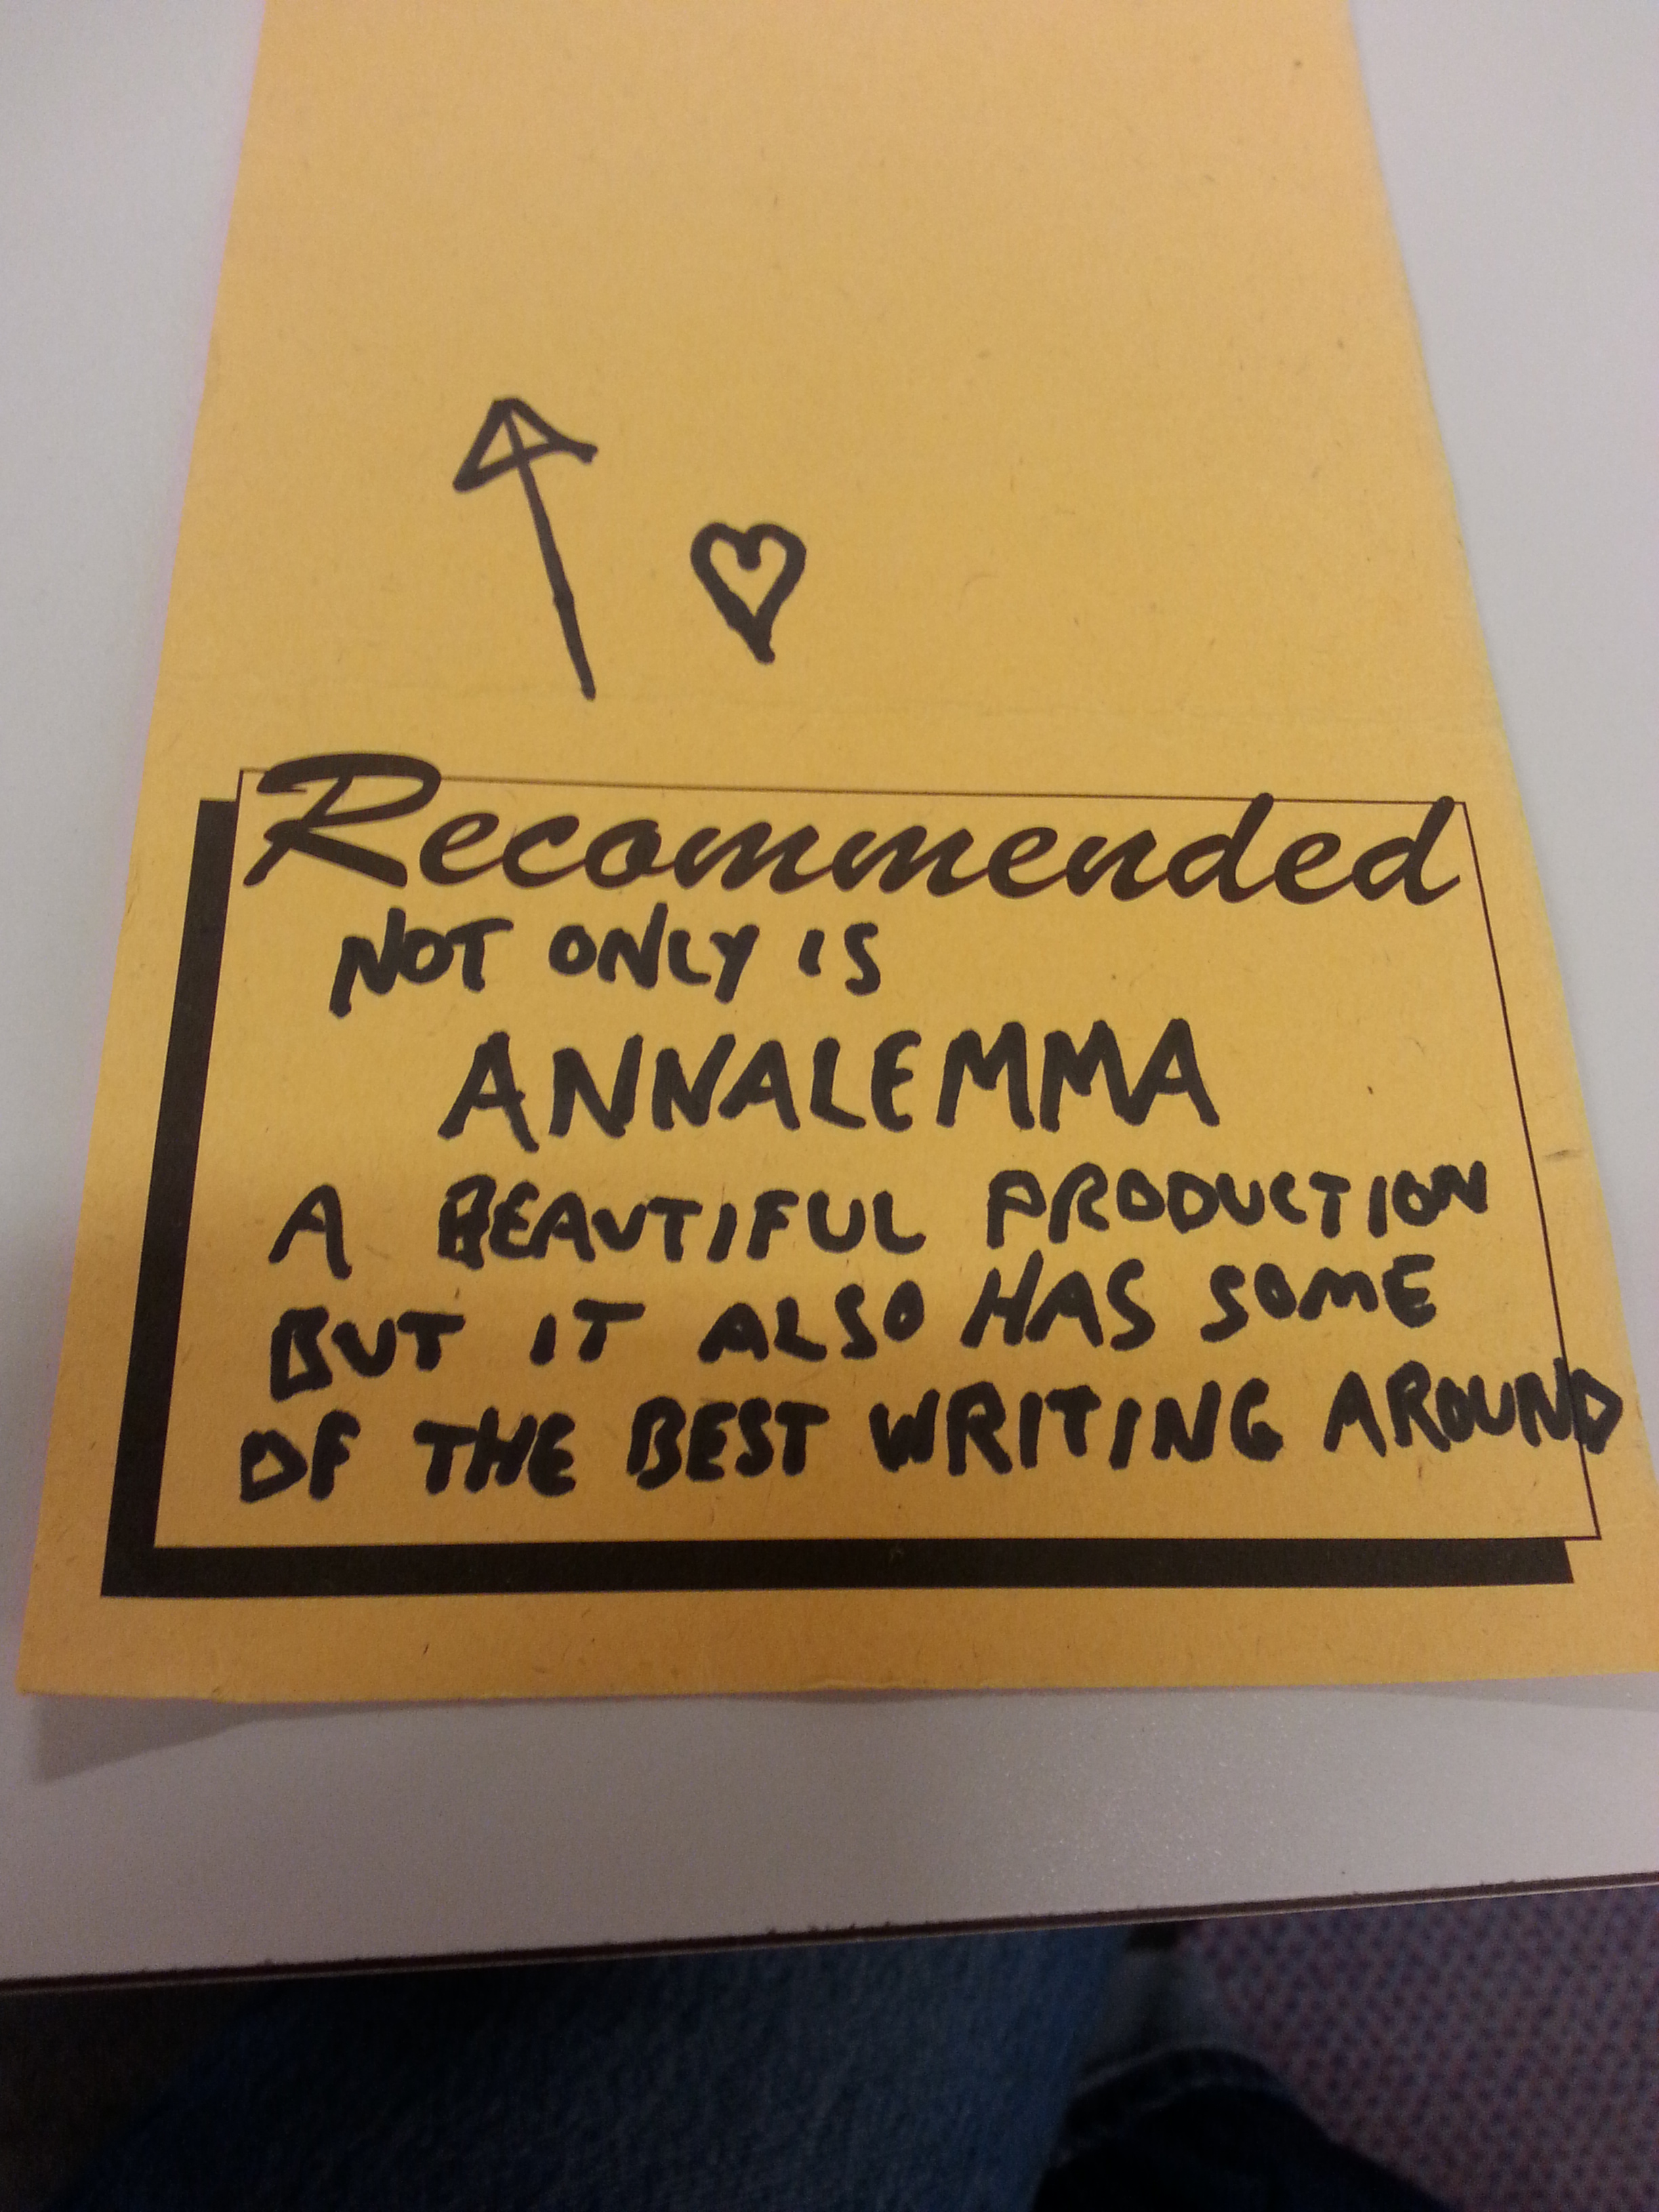 Recommended
NOT ONLY IS
ANNALEMMA
A BEAUTIFUL PRODUCTION
BUT IT ALSO HAS SOME
OF THE BEST WRITING AROUND